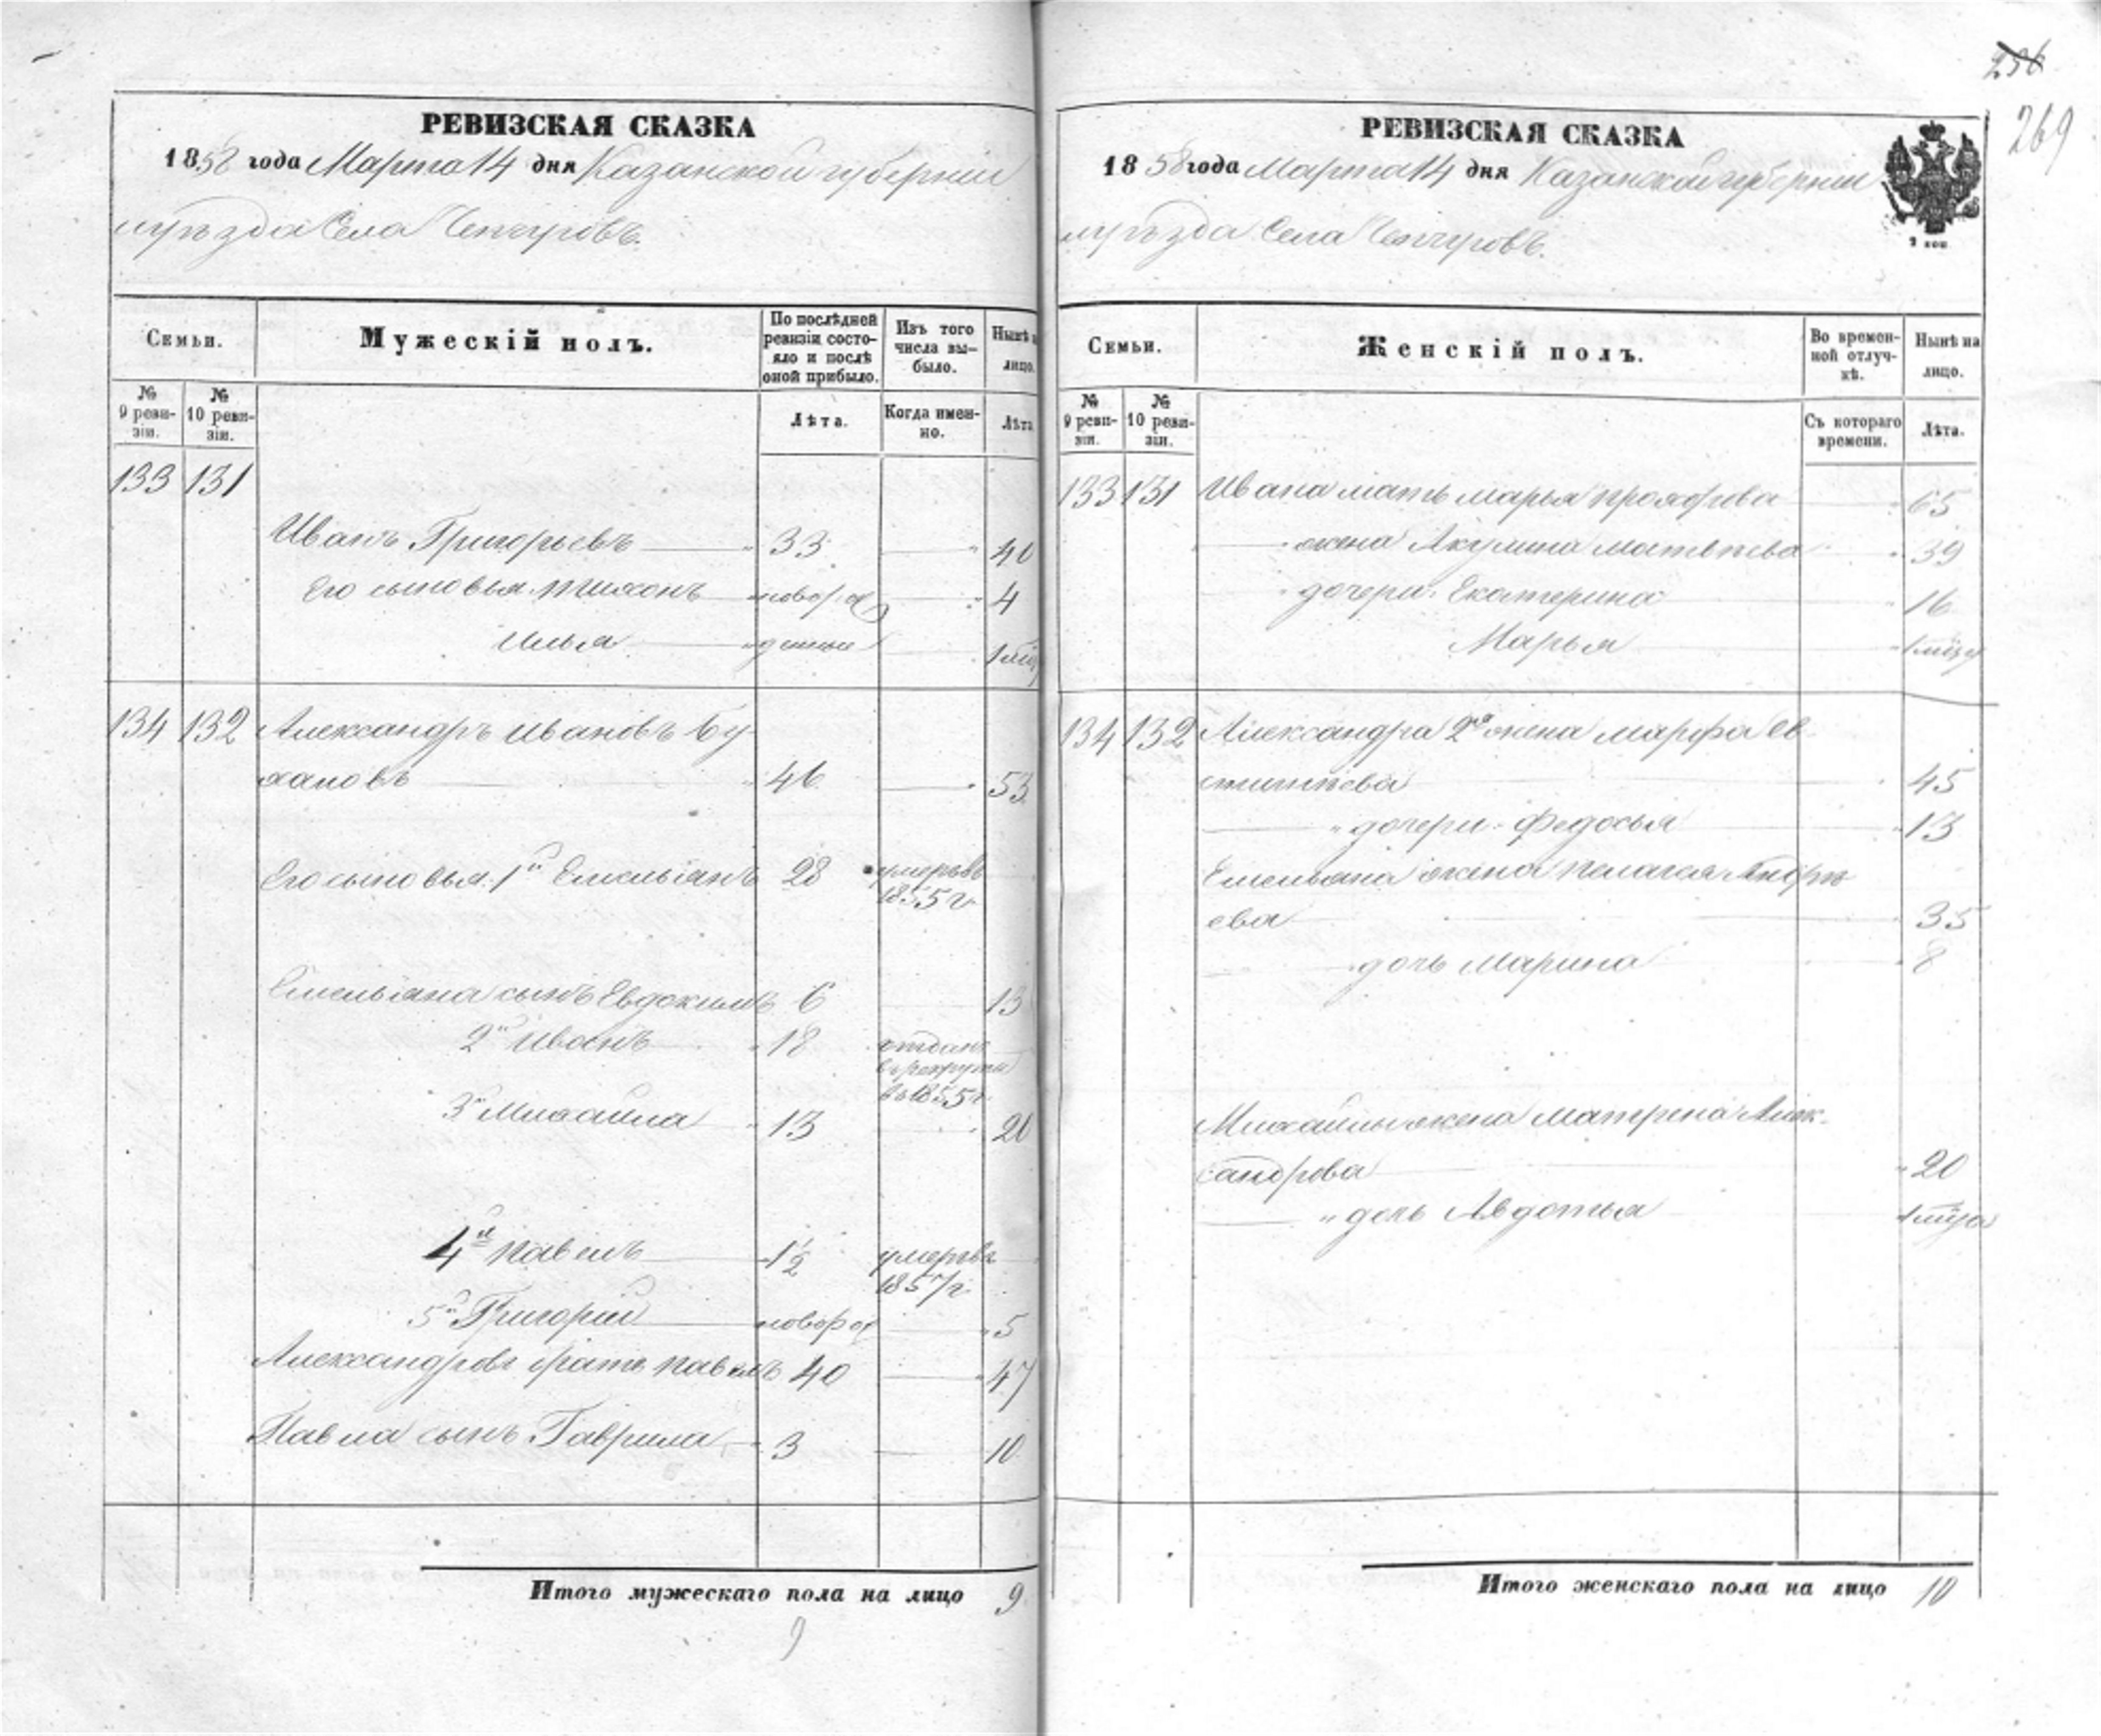 256
269
РЕВИЗСКАЯ СКАЗКА
1858 года Марта 14 дня Казанской губерніи
и уѣзда Села Чепчуговъ.
Семьи.
Мужескій полъ.
По послѣдней ревизіи состояло и послѣ оной прибыло.
Изъ того числа выбыло.
Нынѣ на лицо.
№ 9 ревизіи.
№ 10 ревизіи.
Лѣта.
Когда именно.
Лѣта
133 131
Иванъ Григорьевъ 33 40
Его сыновья Тихонъ новоро 4
Илья жденные 1 мѣс
134 132 Александръ Ивановъ Бу
хановъ 46 53
Его сыновья 1й Емельянъ 28 умеръ въ 1855 г.
Емельяна сынъ Евдокимъ 6 13
2й Иванъ 18 отданъ в рекруты въ 1855 г.
3й Михайла 13 20
4й Павелъ 1/2 умеръ въ 1857 г.
5й Григорій новорож 5
Александровъ братъ Павелъ 40 47
Павла сынъ Гаврила 3 10
Итого мужескаго пола на лицо 9
9
РЕВИЗСКАЯ СКАЗКА
1858 года Марта 14 дня Казанской губерніи
и уѣзда Села Чепчуговъ.
2 коп
Семьи.
Женскій полъ.
Во временной отлучкѣ.
Нынѣ на лицо.
№ 9 ревизіи.
№ 10 ревизіи.
Съ котораго времени.
Лѣта.
133 131 Ивана мать Марья Прохорова 65
жена Акулина Матвѣева 39
дочери: Екатерина 16
Марья 1 мѣсц
134 132 Александра 2я жена Марфа Ев
стигнѣева 45
дочери: Федосья 13
Емельяна жена Пелагея Андрѣ
ева 35
дочь Марина 8
Михайлы жена Матрена Алек-
сандрова 20
дочь Авдотья 1 мѣсца
Итого женскаго пола на лицо 10